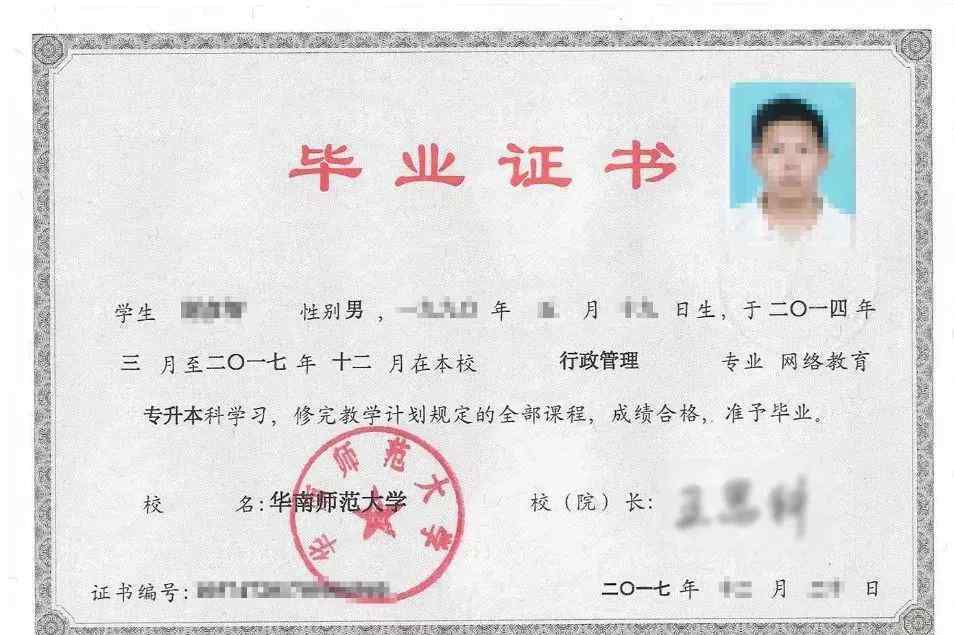 毕业证书
学生 性别男，年 月 日生，于二〇一四年
三 月至二〇一七年 十二 月在本校 行政管理 专业 网络教育
专升本科学习，修完教学计划规定的全部课程，成绩合格，准予毕业。
校 名：华南师范大学 校（院）长：
华南师范大学
证书编号： 二〇一七年 月 日